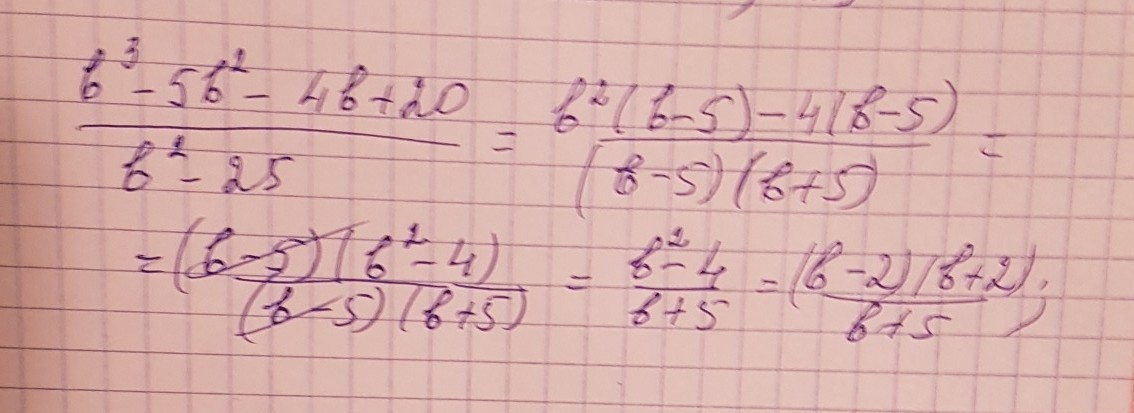 (b³ - 5b² - 4b + 20)/(b² - 25) = (b²(b-5) - 4(b-5))/((b-5)(b+5)) =
= ((b-5)(b² - 4))/((b-5)(b+5)) = (b² - 4)/(b+5) = ((b-2)(b+2))/(b+5);